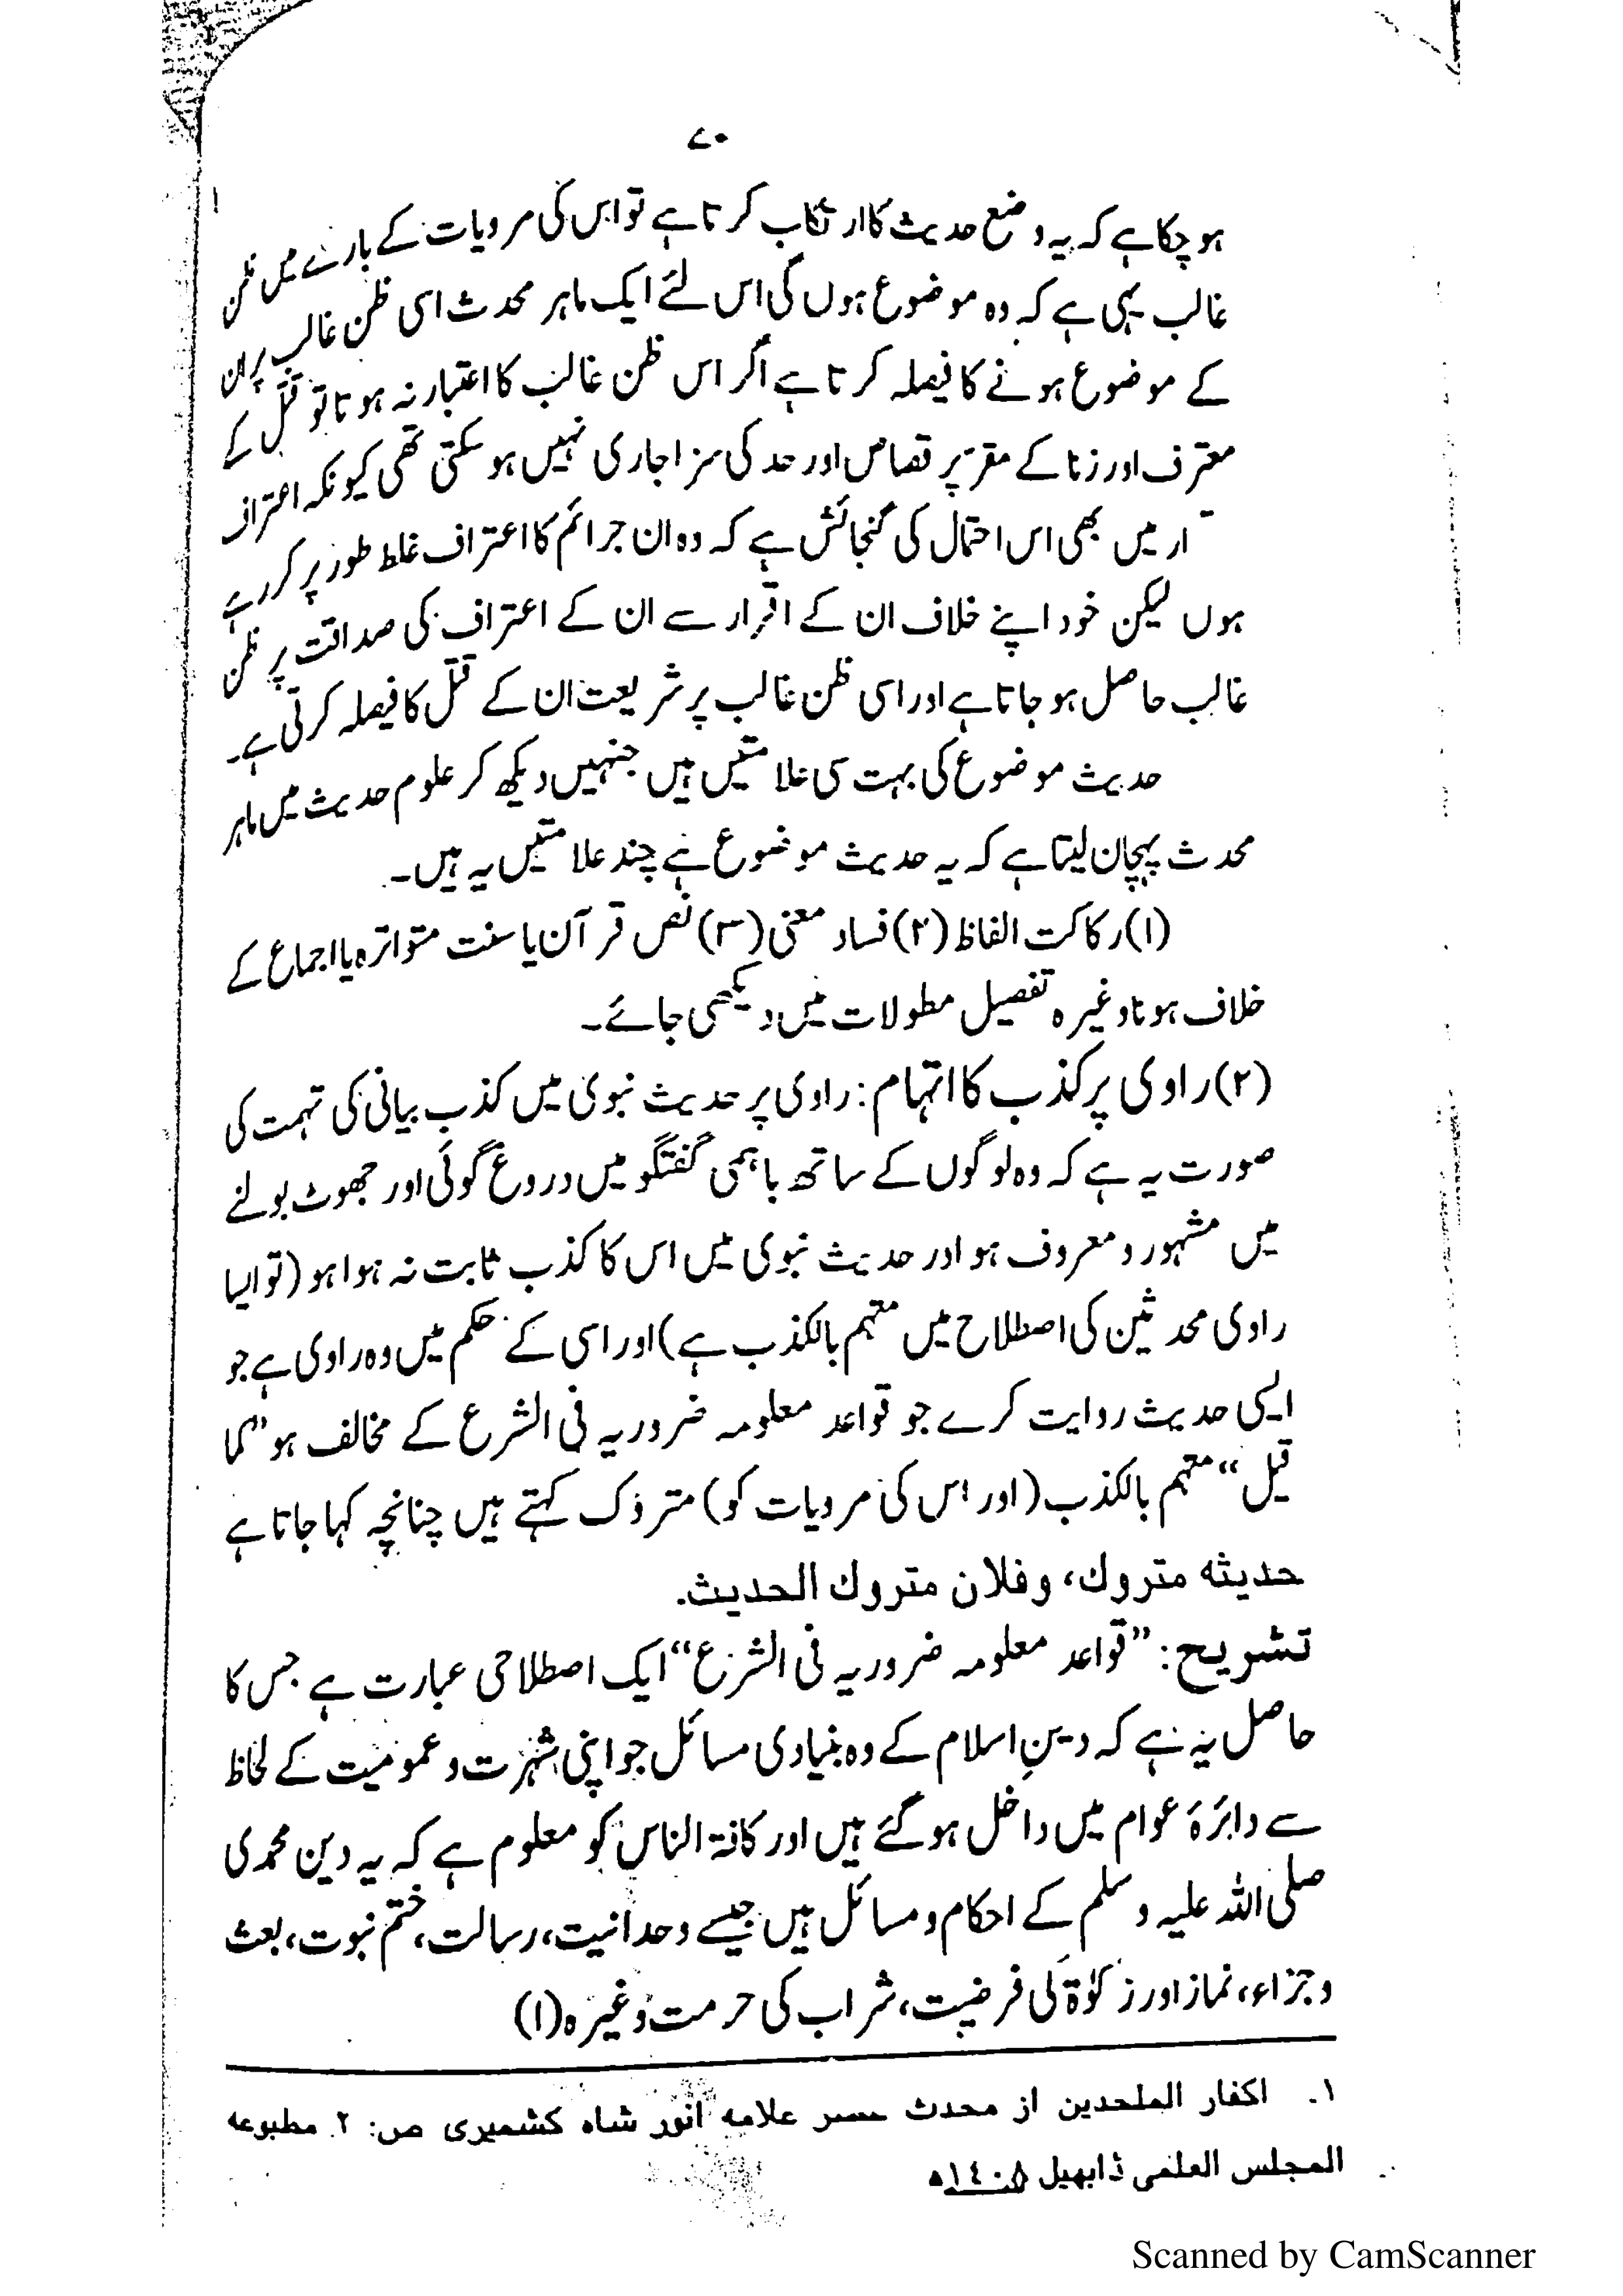 ۷۰
ہوچکا ہے کہ یہ وضع حدیث کا ارتکاب کرتا ہے تو اس کی مرویات کے بارے میں ظن
غالب یہی ہے کہ وہ موضوع ہوں گی اس لئے ایک ماہر محدث اسی ظن غالب پر ان
کے موضوع ہونے کا فیصلہ کرتا ہے اگر اس ظن غالب کا اعتبار نہ ہوتا تو قتل کے
معترف اور زنا کے مقر پر قصاص اور حد کی سزا جاری نہیں ہو سکتی تھی کیونکہ اعتراف
ار میں بھی اس احتمال کی گنجائش ہے کہ وہ ان جرائم کا اعتراف غلط طور پر کر رہے
ہوں لیکن خود اپنے خلاف ان کے اقرار سے ان کے اعتراف کی صداقت پر ظن
غالب حاصل ہو جاتا ہے اور اسی ظن غالب پر شریعت ان کے قتل کا فیصلہ کرتی ہے۔
حدیث موضوع کی بہت سی علامتیں ہیں جنہیں دیکھ کر علوم حدیث میں ماہر
محدث پہچان لیتا ہے کہ یہ حدیث موضوع ہے چند علامتیں یہ ہیں۔
(۱) رکاکت الفاظ (۲) فساد معنی (۳) نص قرآن یا سنت متواترہ یا اجماع کے
خلاف ہونا وغیرہ تفصیل مطولات میں دیکھی جائے۔
(۲) راوی پر کذب کا اتہام: راوی پر حدیث نبوی میں کذب بیانی کی تہمت کی
صورت یہ ہے کہ وہ لوگوں کے ساتھ باہمی گفتگو میں دروغ گوئی اور جھوٹ بولنے
میں مشہور و معروف ہو اور حدیث نبوی میں اس کا کذب ثابت نہ ہوا ہو (تو ایسا
راوی محدثین کی اصطلاح میں متہم بالکذب ہے) اور اسی کے حکم میں وہ راوی ہے جو
ایسی حدیث روایت کرے جو قواعد معلومہ ضروریہ فی الشرع کے مخالف ہو ”کما
قیل“ متہم بالکذب (اور اس کی مرویات کو) متروک کہتے ہیں چنانچہ کہا جاتا ہے
حدیثه متروك، وفلان متروك الحدیث.
تشریح: ”قواعد معلومہ ضروریہ فی الشرع“ ایک اصطلاحی عبارت ہے جس کا
حاصل یہ ہے کہ دینِ اسلام کے وہ بنیادی مسائل جو اپنی شہرت و عمومیت کے لحاظ
سے دائرۂ عوام میں داخل ہو گئے ہیں اور کافۃ الناس کو معلوم ہے کہ یہ دین محمدی
صلی اللہ علیہ وسلم کے احکام و مسائل ہیں جیسے وحدانیت، رسالت، ختم نبوت، بعث
و جزاء، نماز اور زکوٰۃ کی فرضیت، شراب کی حرمت وغیرہ (۱)
۱۔ اکفار الملحدین از محدث عصر علامه انور شاه کشمیری ص: ۲ مطبوعه
المجلس العلمی ڈابھیل ۱٤۰۸ه
Scanned by CamScanner